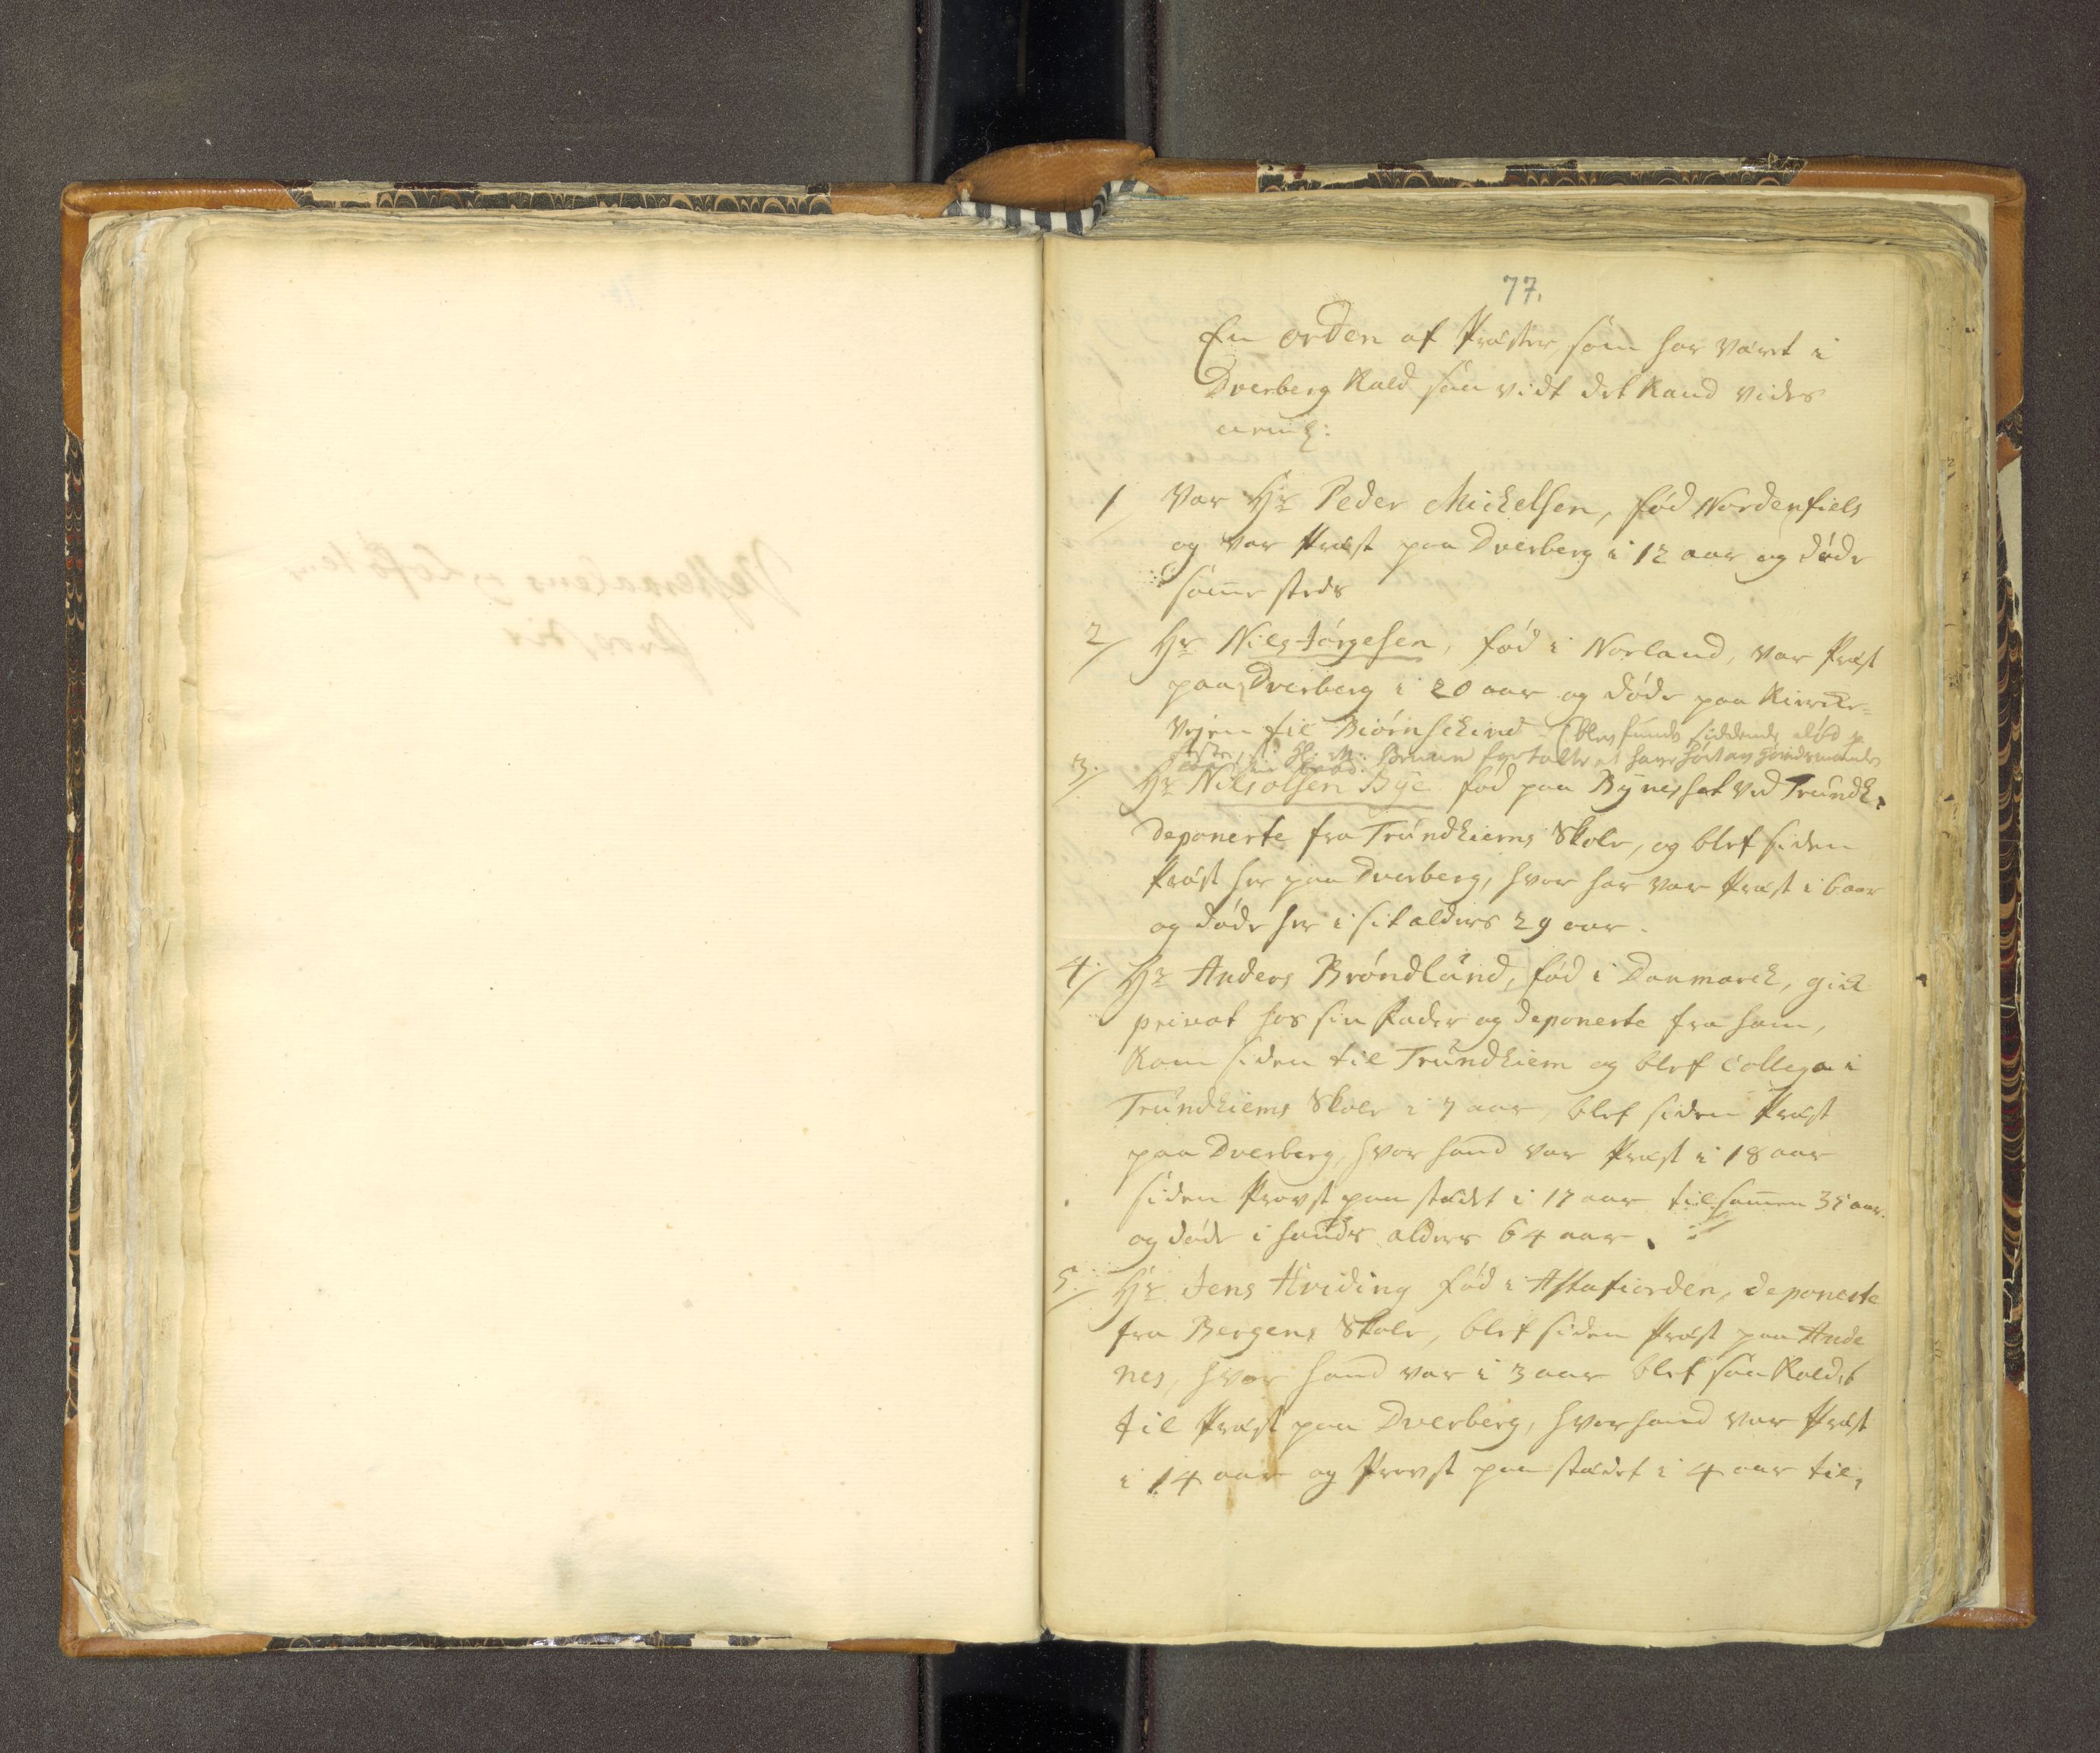 77.
En orden af Præster som har været i
Dverberg Kald saa vidt det Kand vides
1 Var Hr Peder Michelsen, fød Nordenfiels
og var Præst paa Dverberg i 12 aar og døde
samme steds
2/ Hr Nils Jørgesen, fød i Norland, var Præst
paa Dverberg i 20 aar og døde paa Kircke-
Vejen til Biørnschind (blev funde siddende død
M: Bruun fortalte at have hørt av
3/ Hr Nils olsen Bÿe fød paa Bÿnesset ved Trundh.
deponerte fra Trundhiems Skole, og blef siden
Præst her paa Dverberg, hvor har var Præst i 6 aar
og døde her i sit alders 29 aar.
4/ Hr Anders Brøndlund, fød i Danmarck, gick
privat hos sin Fader og deponerte fra ham,
Kom siden til Trundhiem og blef Collega i
Trundhiems Skole i 7 aar, blef siden Præst
paa Dverberg, hvor hand var Præst i 18 aar
siden Provst paa stædet i 17 aar tilsammen 35 aar.
og døde i hands alders 64 aar.
5/ Hr Jens Hviding fød i Astafiorden, deponerte
fra Bergens Skole, blef siden Præst paa Ande
nes, hvor hand var i 3 aar blef saa Kaldet
til Præst paa Dverberg, hvor hand var Præst
i 14 aar og Provst paa stædet i 4 aar til,